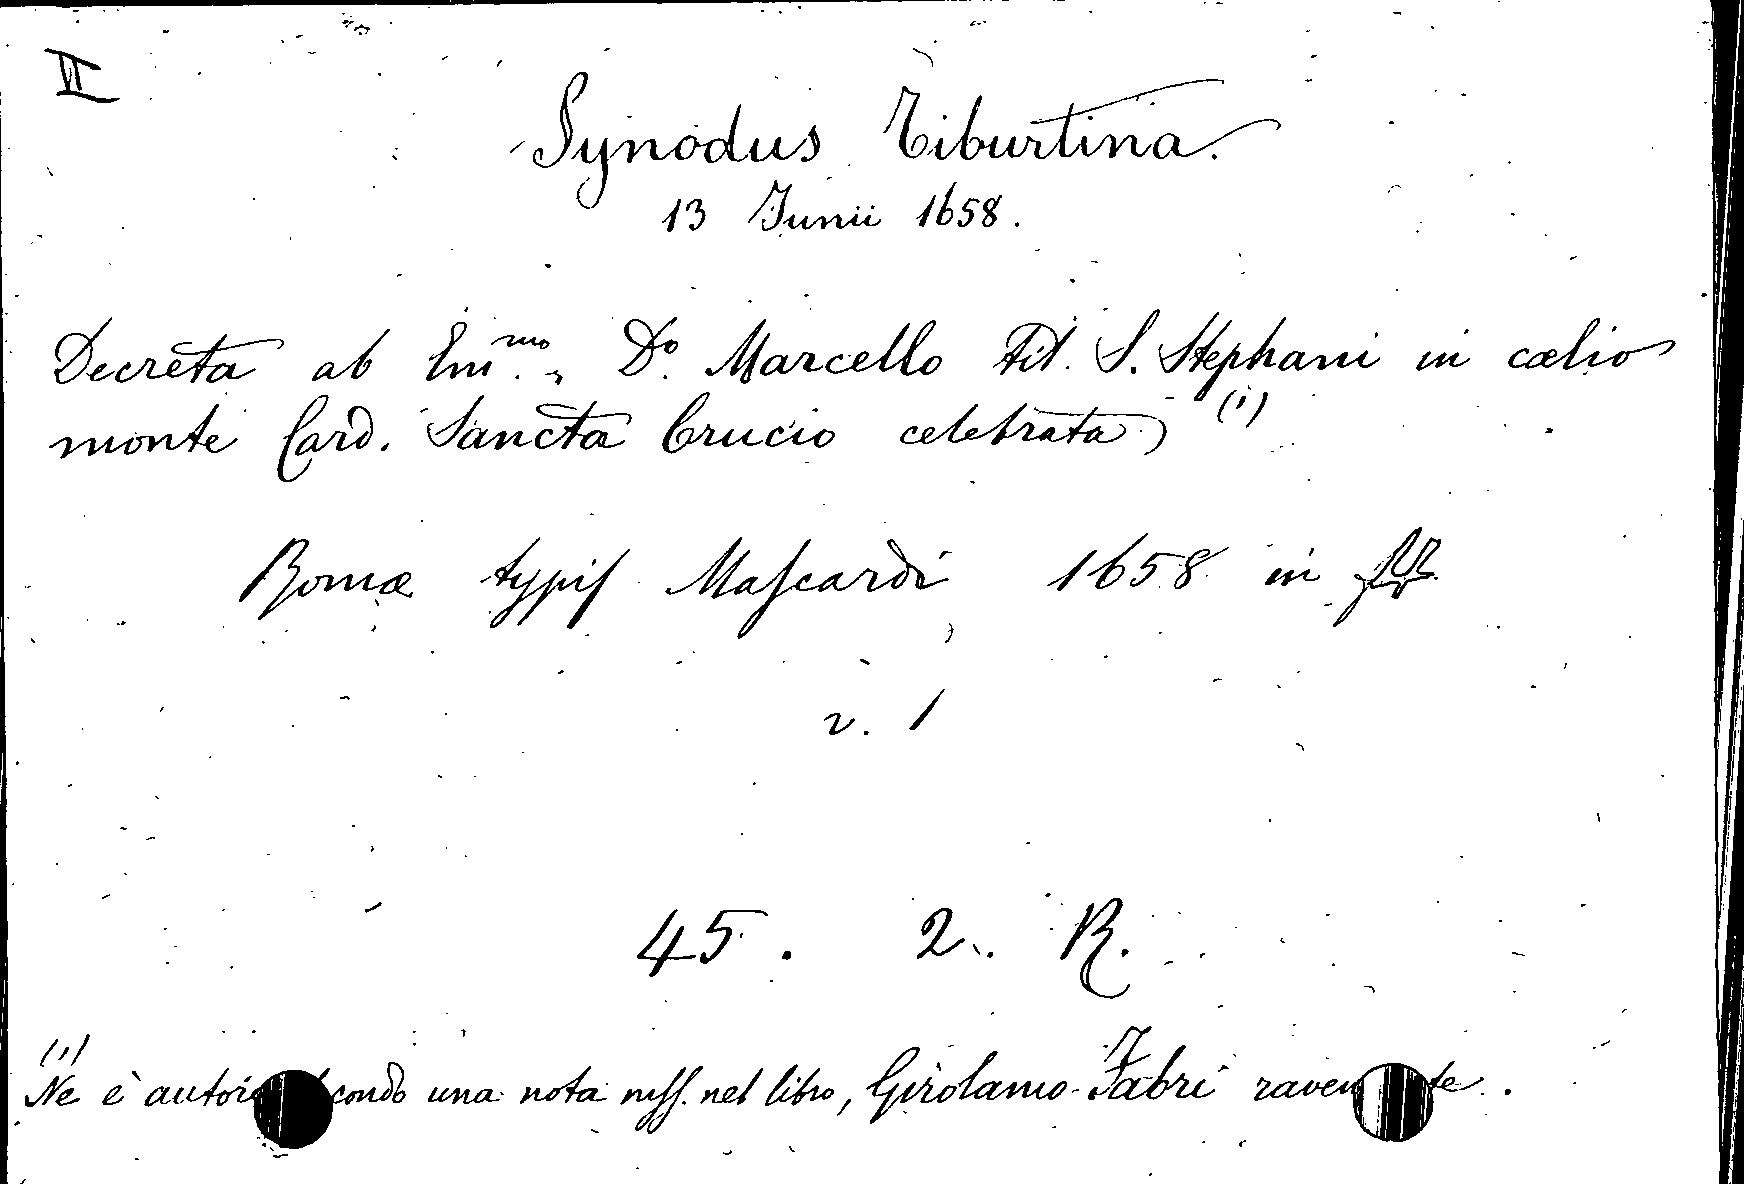 VI
Synodus Tiburtina.
13 Junii 1658.
Decreta ab Em.mo Do. Marcello Tit. S. Stephani in cœlio
monte Card. Sancta Crucio celebrata (1)
Romæ typis Mascardi 1658 in
v. 1
45. 2. R.
(1)
Ne è una nota mss. nel libro, Girolamo Fabri